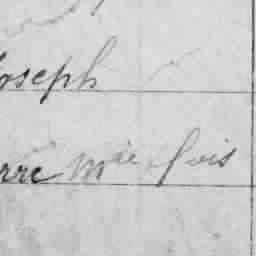 Joseph
rre Mie fois